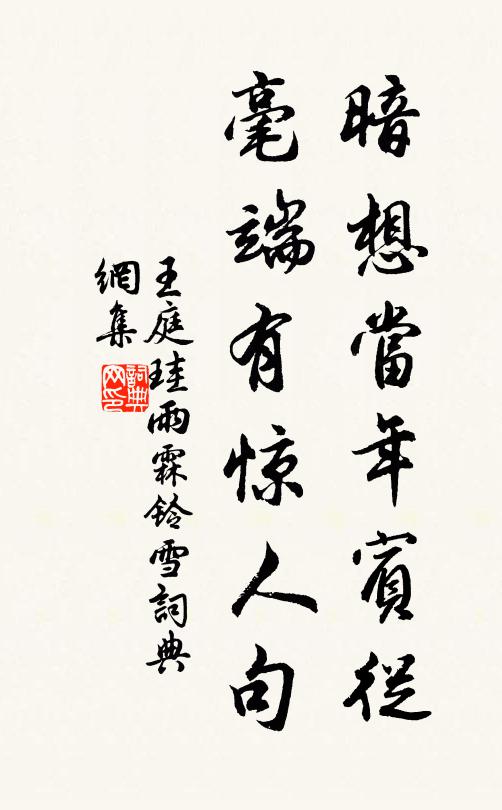 暗想當年賓從
毫端有惊人句
王庭珪雨霖鈴雪詞典
網集
詞典
网印